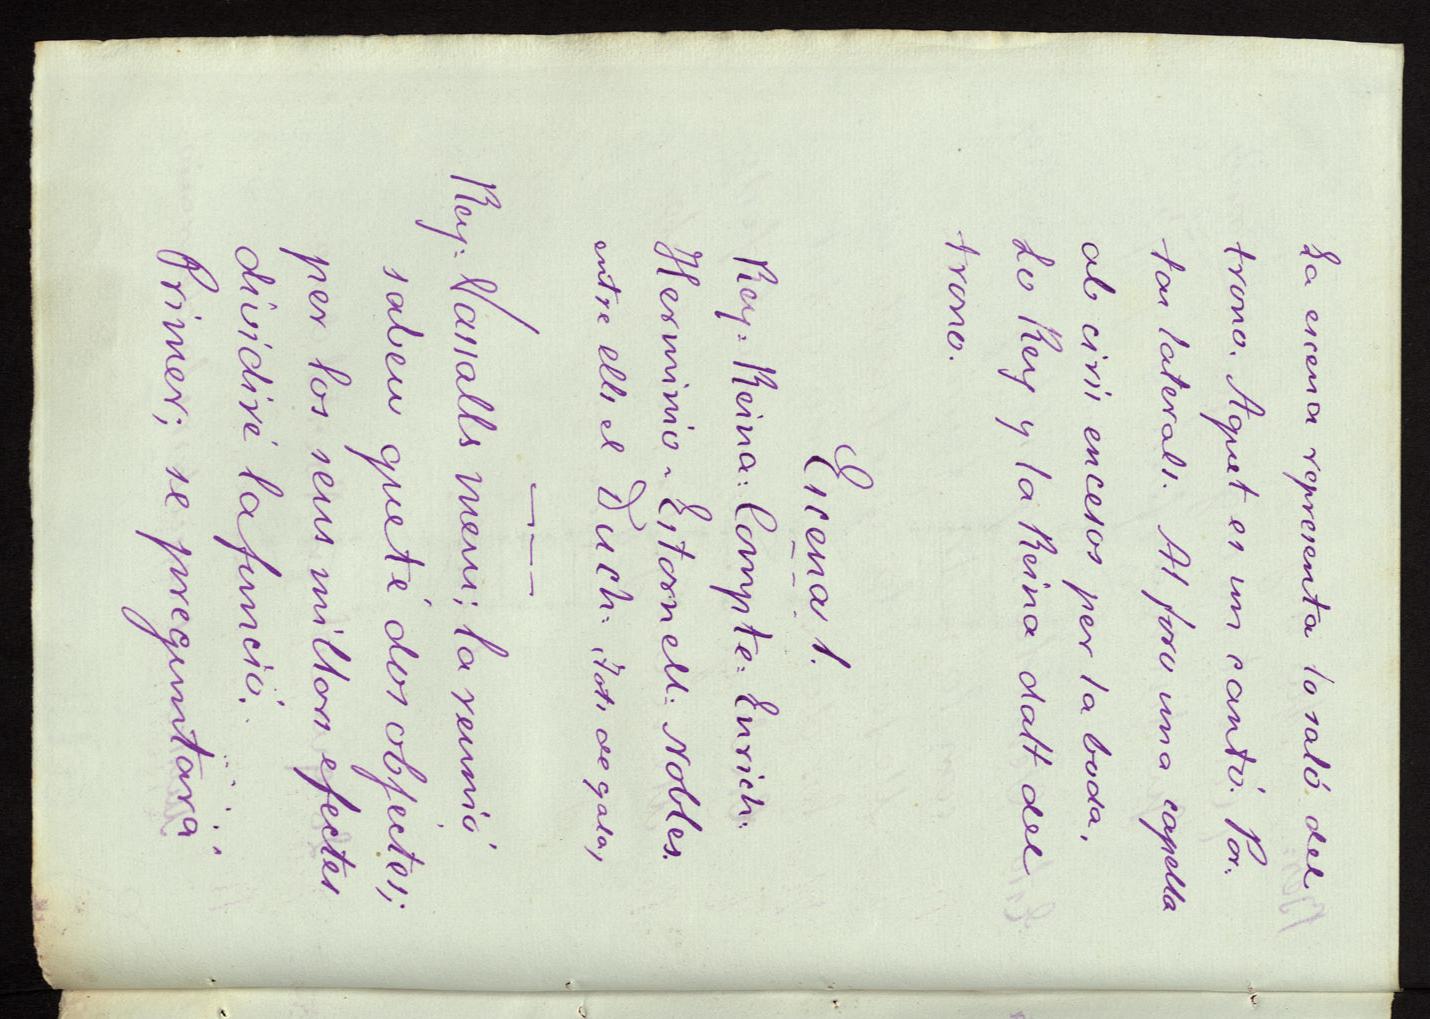 La escena representa lo saló del
trono. Aquet es un cantó. Por-
tas laterals. Al foro una capella
ab ciris encesos per la boda.
Lo Rey y la Reina dalt del
trono.
Escena 1.
Rey= Reina= Compte= Enrich.
Herminio - Estornell= Nobles.
entre ells el Duch= Tots de gala,
Rey= Vassalls meus; la reunió
saben que té dos objectes;
per los seus millors efectes
dividiré la funció.
Primer; se preguntará